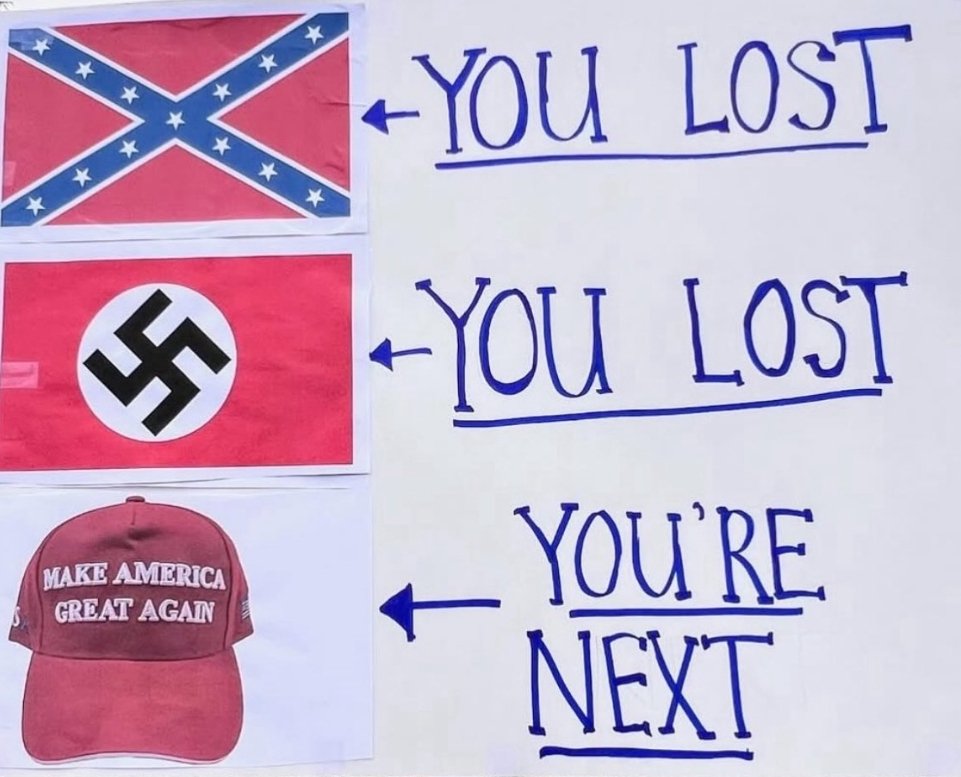 YOU LOST
YOU LOST
MAKE AMERICA
GREAT AGAIN
YOU'RE
NEXT